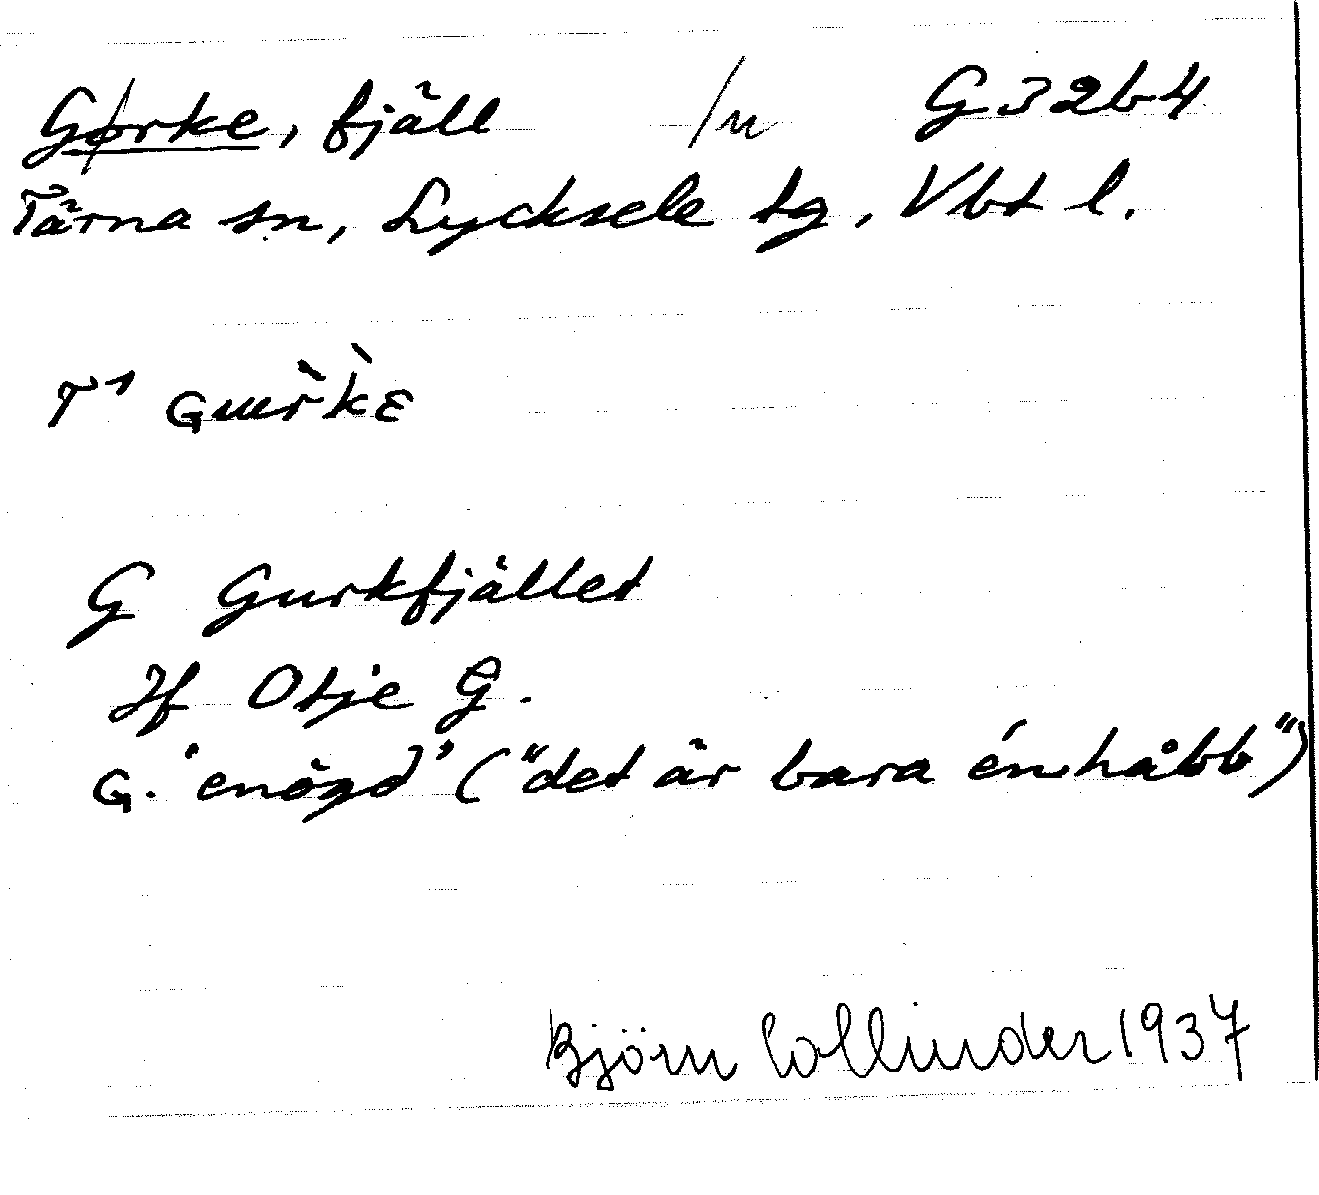 Gørke, fjäll /u G32b4
Tärna sn, Lycksele tg, Vbt l.
T¹ Gɯr̀k̀ɛ
G Gurkfjället
Jf Otje G.
G. 'enögd' ("det är bara én håbb")
Björn Collinder 1937